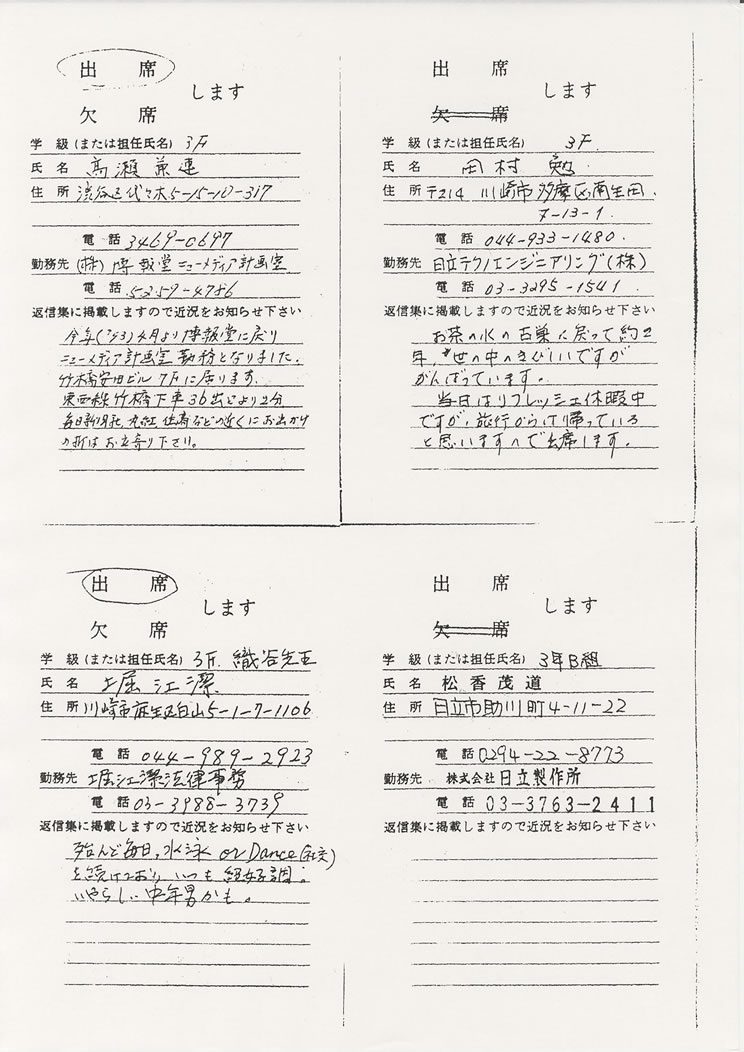 出 席
します
欠 席
学 級(または担任氏名) 3F
氏 名 高瀬兼連
住 所 渋谷区代々木5-15-10-317
電 話 3469-0697
勤務先 (株)博報堂ニューメディア計画室
電 話 5259-4786
返信集に掲載しますので近況をお知らせ下さい
今年(’93)4月より博報堂に戻り
ニューメディア計画室勤務となりました.
竹橋安田ビル7Fに居ります.
東西線竹橋下車3b出口より2分
毎日新聞社、丸紅、住商などの近くにお出かけ
の折はお立寄り下さい。
出 席
します
欠 席
学 級(または担任氏名) 3F.
氏 名 田村 勉
住 所 〒214 川崎市多摩区南生田.
7-13-1.
電 話 044-933-1480.
勤務先 日立テクノエンジニアリング(株)
電 話 03-3295-1541.
返信集に掲載しますので近況をお知らせ下さい
お茶の水の古巣に戻って約2
年,世の中のきびしいですが
がんばっています。
当日はリフレッシュ休暇中
ですが,旅行からは帰っている
と思いますので出席します。
出 席
します
欠 席
学 級(または担任氏名) 3F. 織谷先生
氏 名 堀江潔
住 所 川崎市麻生区白山5-1-7-1106
電 話 044-989-2923
勤務先 堀江潔法律事務
電 話 03-3988-3739
返信集に掲載しますので近況をお知らせ下さい
殆んど毎日,水泳 or Dance(社交)
を続けており,いつも絶好調.
いやらしい中年男かも。
出 席
します
欠 席
学 級(または担任氏名) 3年B組
氏 名 松香茂道
住 所 日立市助川町4-11-22
電 話 0294-22-8773
勤務先 株式会社日立製作所
電 話 03-3763-2411
返信集に掲載しますので近況をお知らせ下さい